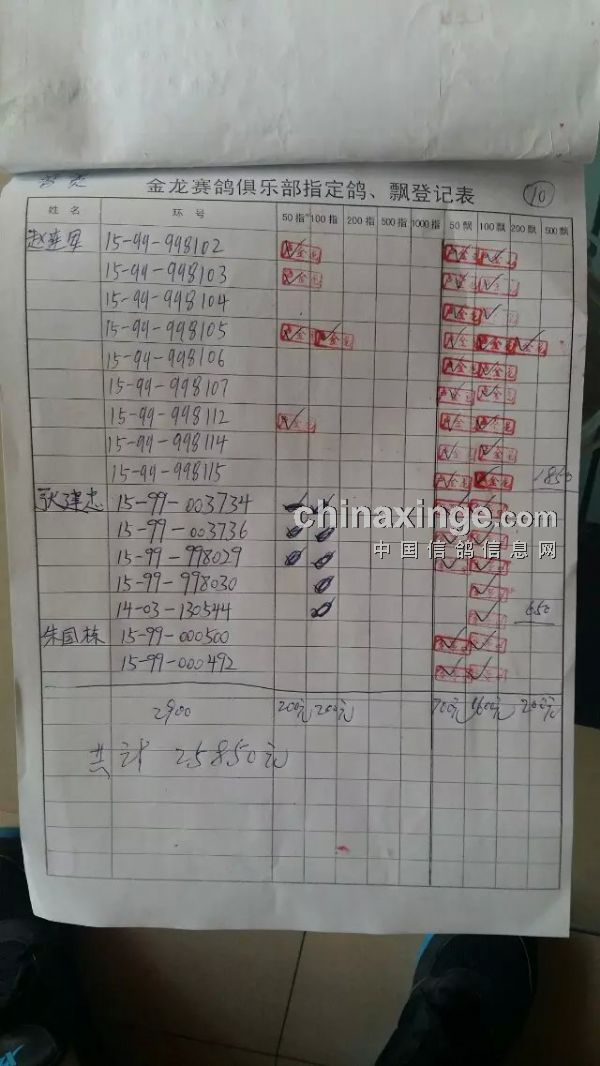 金龙赛鸽俱乐部指定鸽、飘登记表 10
姓名 环号 50指 100指 200指 500指 1000指 50飘 100飘 200飘 500飘
15-99-998102
15-99-998103
15-99-998104
15-99-998105
15-99-998106
15-99-998107
15-99-998112
15-99-998114
15-99-998115 1850
张建忠 15-99-003734
15-99-003736
15-99-998029
15-99-998030
14-03-130544 650
朱国栋 15-99-000500
15-99-000492
2900 200元 200元 700元 1600元 200元
共计 25850元
chinaxinge.com
中国信鸽信息网